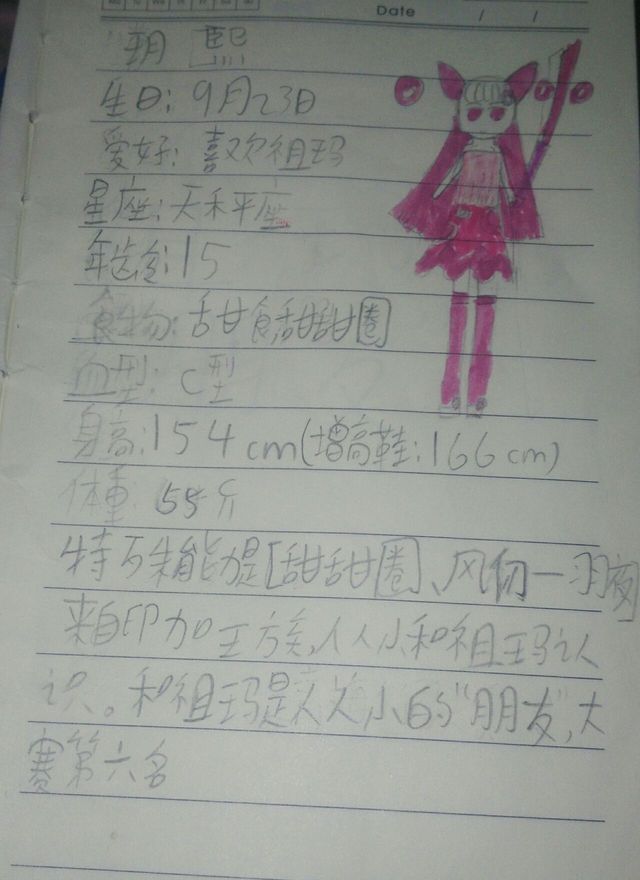 Date / /
玥熙
生日：9月23日
爱好：喜欢祖玛
星座：天秤座
年龄：15
食物：甜食甜甜圈
血型：C型
身高：154cm（增高鞋：166cm）
体重：55斤
特殊能力是［甜甜圈］、风的一羽夜
来自印加王族，从小和祖玛认
识。和祖玛是从小的“朋友”，大
赛第六名